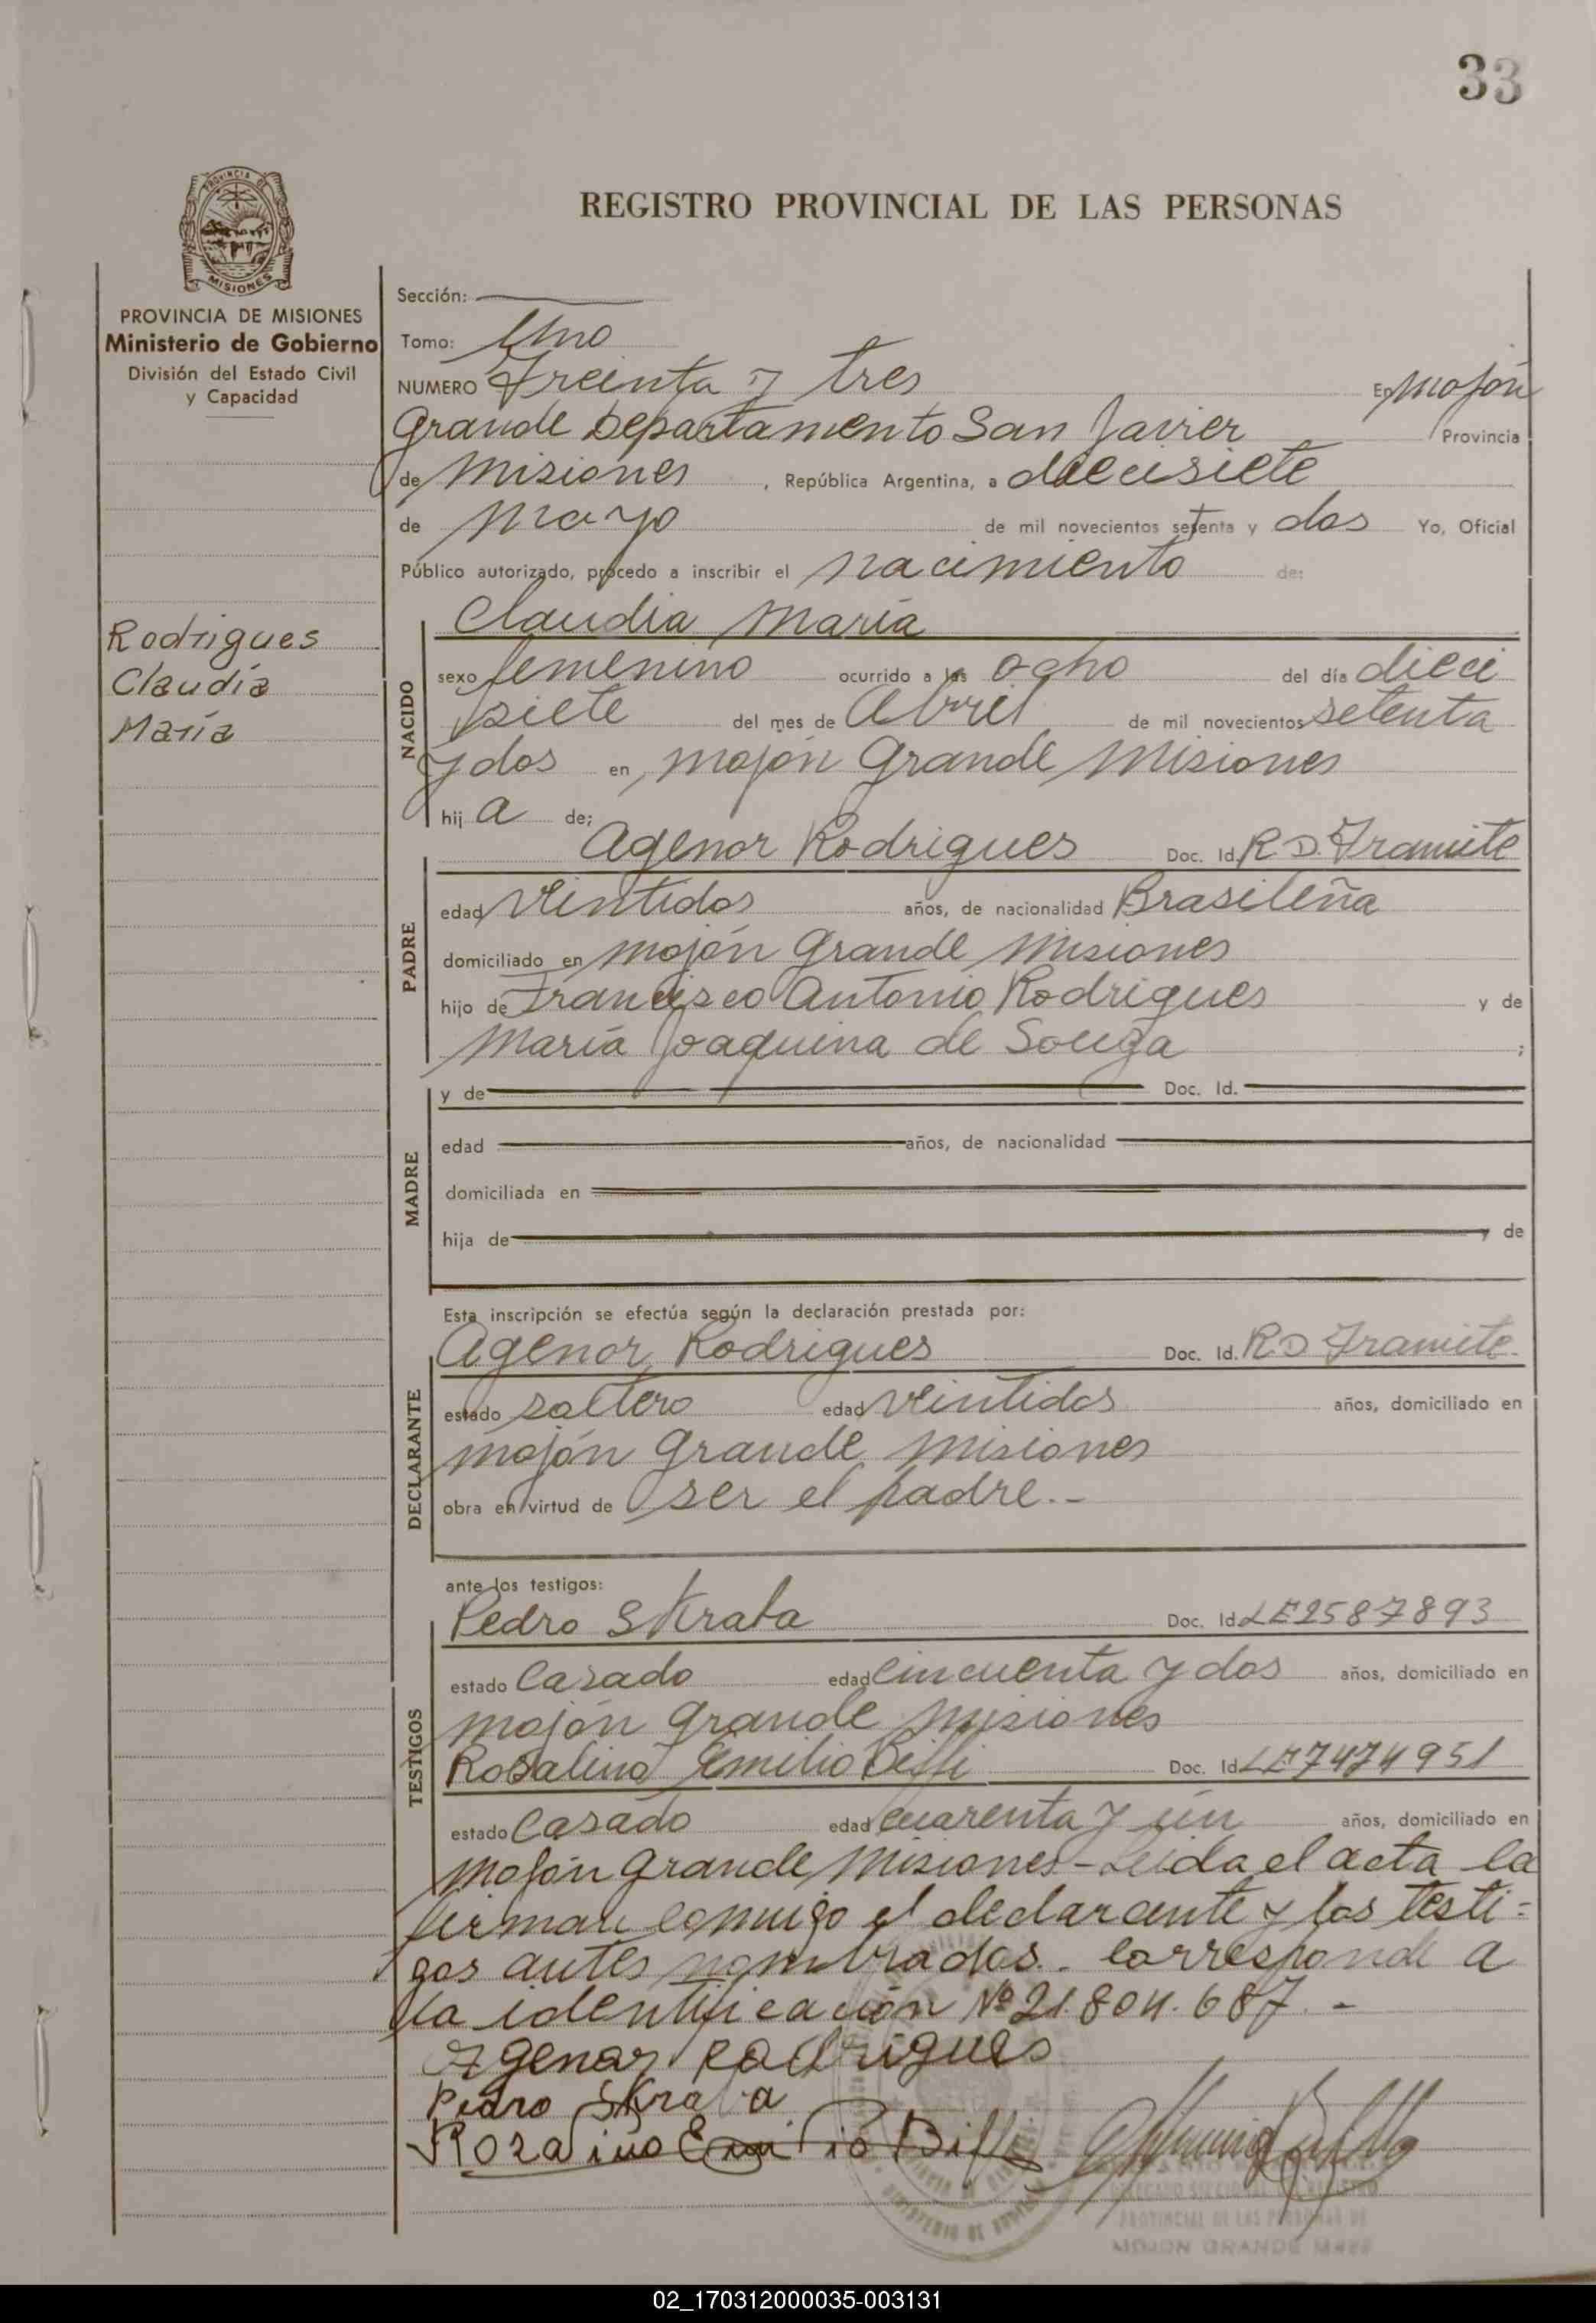 33
PROVINCIA DE MISIONES
REGISTRO PROVINCIAL DE LAS PERSONAS
PROVINCIA DE MISIONES
Ministerio de Gobierno
División del Estado Civil
y Capacidad
Rodrigues
Claudia
María
Sección:
Tomo: Uno
NUMERO Treinta y tres En Mojón
Grande Departamento San Javier Provincia
de Misiones, República Argentina, a diecisiete
de Mayo de mil novecientos setenta y dos Yo, Oficial
Público autorizado, procedo a inscribir el nacimiento de:
Claudia María
NACIDO
sexo femenino ocurrido a las ocho del día dieci
siete del mes de Abril de mil novecientos setenta
y dos en Mojón Grande Misiones
hija de:
Agenor Rodrigues Doc. Id. R.D. Tramite
PADRE
edad veintidos años, de nacionalidad Brasileña
domiciliado en Mojón Grande Misiones
hijo de Francisco Antonio Rodrigues y de
María Joaquina de Souza ;
y de Doc. Id.
MADRE
edad años, de nacionalidad
domiciliada en
hija de y de
Esta inscripción se efectúa según la declaración prestada por:
Agenor Rodrigues Doc. Id. R D Tramite
DECLARANTE
estado soltero edad veintidos años, domiciliado en
Mojón Grande Misiones
obra en virtud de ser el padre.-
ante los testigos:
Pedro Skraba Doc. Id. LE 2587893
TESTIGOS
estado Casado edad Cincuenta y dos años, domiciliado en
Mojón Grande Misiones
Rosalino Emilio Biffi Doc. Id. LE 7474951
estado Casado edad Cuarenta y un años, domiciliado en
Mojón Grande Misiones - Leida el acta la
firman conmigo el declarante y los testi=
gos antes nombrados.- Corresponde a
la identificación Nº 21.804.687.-
Agenor Rodrigues
Pedro Skraba
Rozalino Emilio Biffi
PROVINCIAL DE LAS PERSONAS DE
MOJON GRANDE
02_170312000035-003131